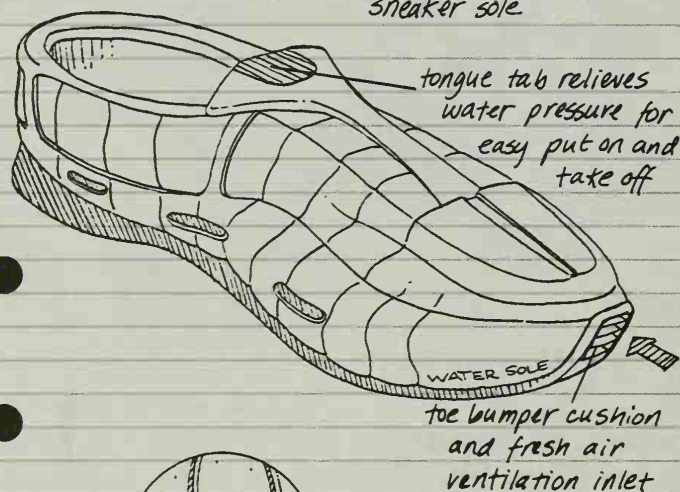 sneaker sole
tongue tab relieves
water pressure for
easy put on and
take off
WATER SOLE
toe bumper cushion
and fresh air
ventilation inlet